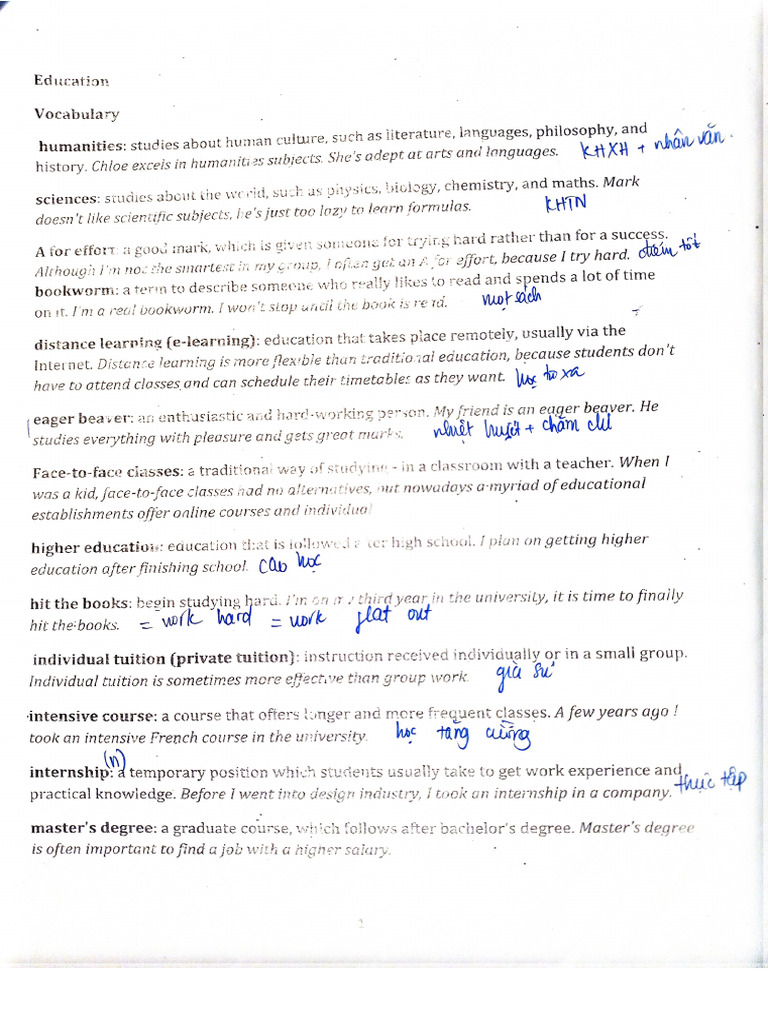 Education
Vocabulary
humanities: studies about human culture, such as literature, languages, philosophy, and
history. Chloe excels in humanities subjects. She's adept at arts and languages. KHXH + nhân văn.
sciences: studies about the world, such as physics, biology, chemistry, and maths. Mark
doesn't like scientific subjects, he's just too lazy to learn formulas. KHTN
A for effort: a good mark, which is given someone for trying hard rather than for a success.
Although I'm not the smartest in my group, I often get an A for effort, because I try hard. điểm tốt
bookworm: a term to describe someone who really likes to read and spends a lot of time
on it. I'm a real bookworm. I won't stop until the book is read. mọt sách
distance learning (e-learning): education that takes place remotely, usually via the
Internet. Distance learning is more flexible than traditional education, because students don't
have to attend classes and can schedule their timetables as they want. học từ xa
eager beaver: an enthusiastic and hard-working person. My friend is an eager beaver. He
studies everything with pleasure and gets great marks. nhiệt huyết + chăm chỉ
Face-to-face classes: a traditional way of studying - in a classroom with a teacher. When I
was a kid, face-to-face classes had no alternatives, but nowadays a myriad of educational
establishments offer online courses and individual
higher education: education that is followed after high school. I plan on getting higher
education after finishing school. cao học
hit the books: begin studying hard. I'm on my third year in the university, it is time to finally
hit the books. = work hard = work flat out
individual tuition (private tuition): instruction received individually or in a small group.
Individual tuition is sometimes more effective than group work. gia sư
intensive course: a course that offers longer and more frequent classes. A few years ago I
took an intensive French course in the university. học tăng cường
(n)
internship: a temporary position which students usually take to get work experience and
practical knowledge. Before I went into design industry, I took an internship in a company. thực tập
master's degree: a graduate course, which follows after bachelor's degree. Master's degree
is often important to find a job with a higher salary.